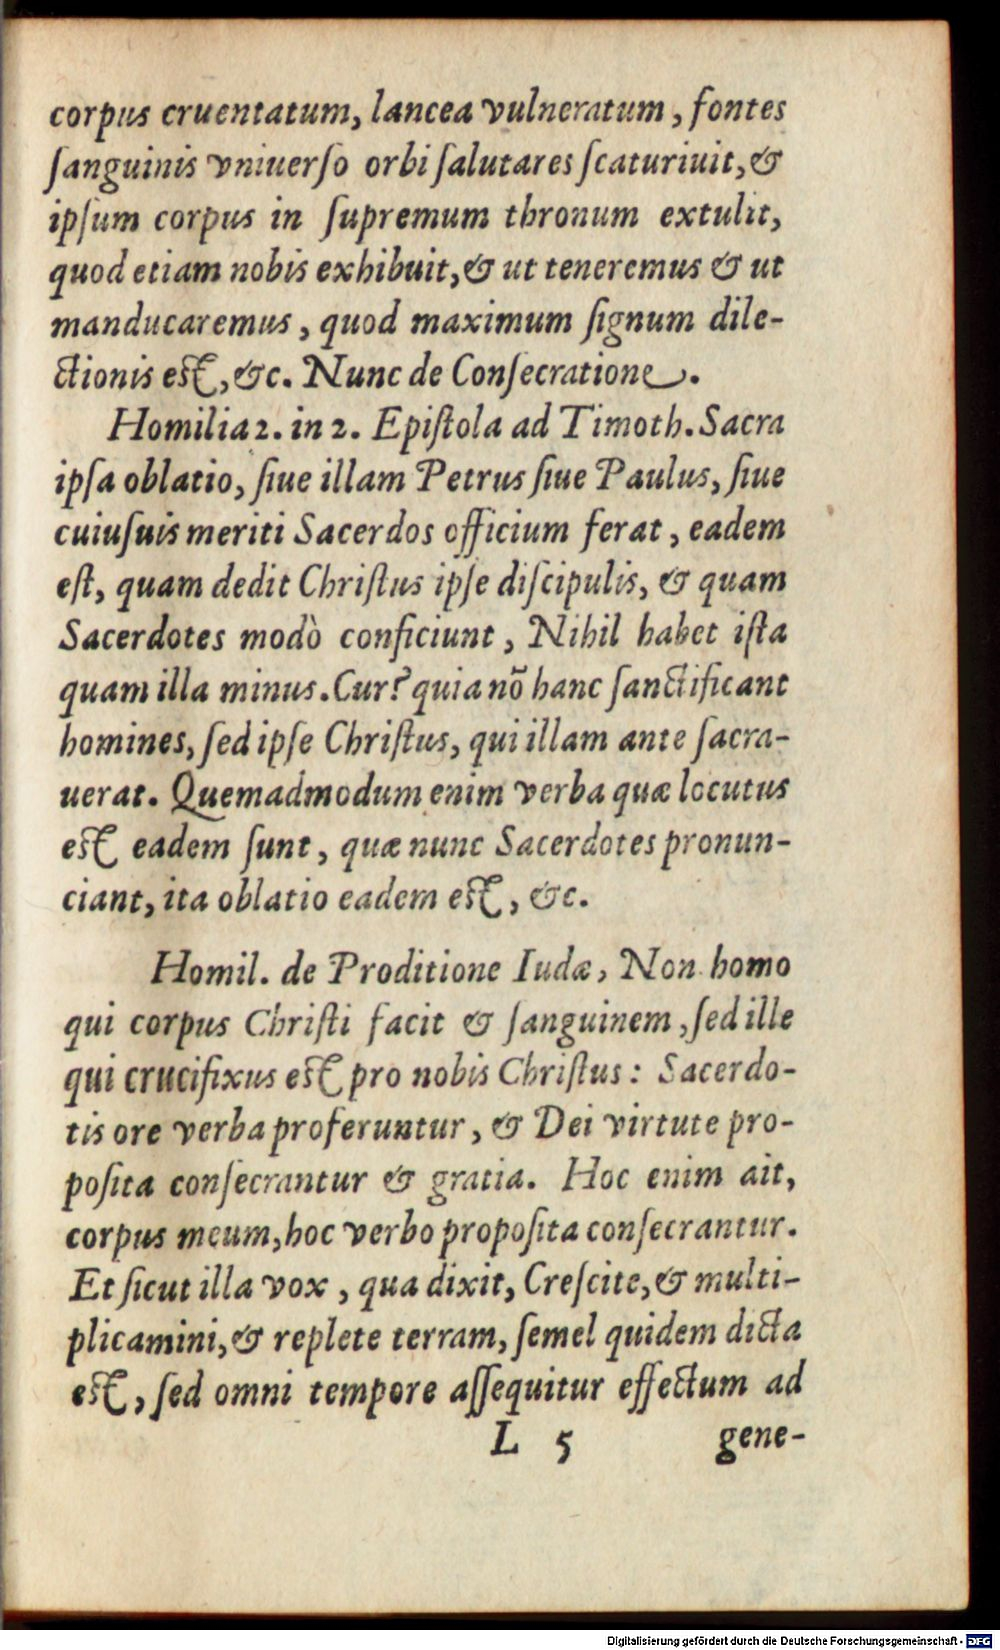 corpus cruentatum, lancea vulneratum, fontes
ſanguinis vniuerſo orbi ſalutares ſcaturiuit, &
ipſum corpus in ſupremum thronum extulit,
quod etiam nobis exhibuit, & ut teneremus & ut
manducaremus, quod maximum ſignum dile-
ctionis eſt, &c. Nunc de Conſecratione.
Homilia 2. in 2. Epiſtola ad Timoth. Sacra
ipſa oblatio, ſiue illam Petrus ſiue Paulus, ſiue
cuiuſuis meriti Sacerdos officium ferat, eadem
eſt, quam dedit Chriſtus ipſe diſcipulis, & quam
Sacerdotes modò conficiunt, Nihil habet iſta
quam illa minus. Cur? quia nõ hanc ſanctificant
homines, ſed ipſe Chriſtus, qui illam ante ſacra-
uerat. Quemadmodum enim verba quæ locutus
eſt eadem ſunt, quæ nunc Sacerdotes pronun-
ciant, ita oblatio eadem eſt, &c.
Homil. de Proditione Iudæ, Non homo
qui corpus Chriſti facit & ſanguinem, ſed ille
qui crucifixus eſt pro nobis Chriſtus: Sacerdo-
tis ore verba proferuntur, & Dei virtute pro-
poſita conſecrantur & gratia. Hoc enim ait,
corpus meum, hoc verbo propoſita conſecrantur.
Et ſicut illa vox, qua dixit, Creſcite, & multi-
plicamini, & replete terram, ſemel quidem dicta
eſt, ſed omni tempore aſſequitur effectum ad
L 5 gene-
Digitalisierung gefördert durch die Deutsche Forschungsgemeinschaft - DFG